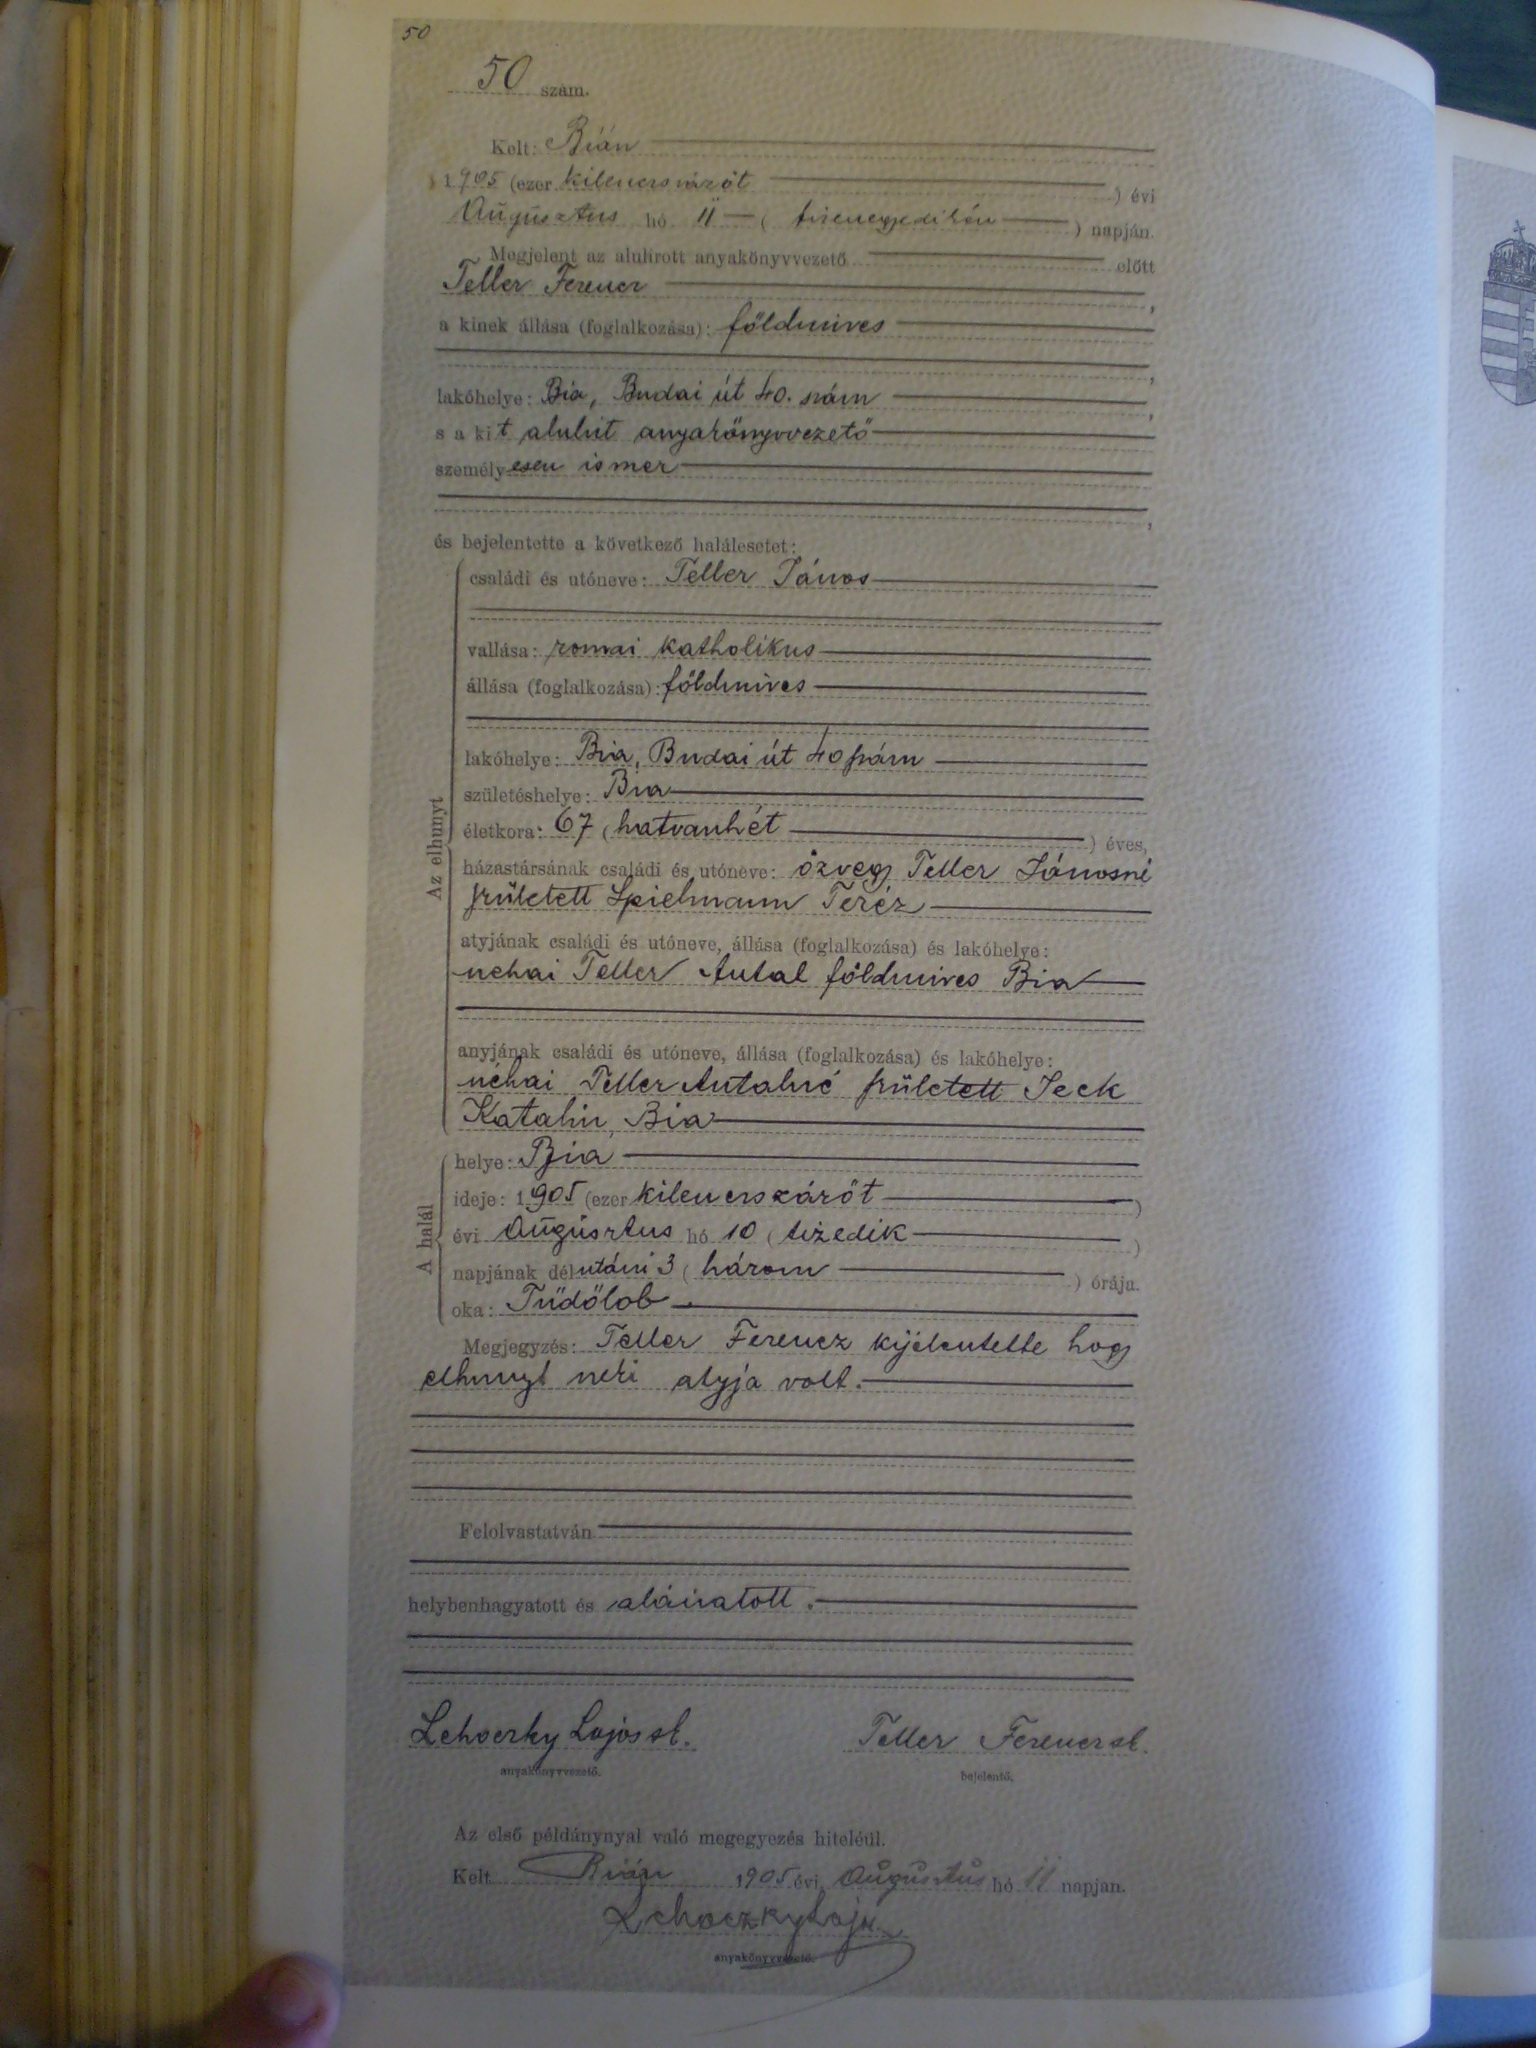 50
50 szám.
Kelt: Bián
1905 (ezer kilenczszázöt ) évi
Augusztus hó 11 ( tizenegyedikén ) napján.
Megjelent az alulírott anyakönyvvezető előtt
Teller Ferencz ,
a kinek állása (foglalkozása): földmives
,
lakóhelye: Bia, Budai út 40. szám ,
s a kit alulirt anyakönyvvezető
személyesen ismer
,
és bejelentette a következő halálesetet:
Az elhunyt
családi és utóneve: Teller János
vallása: romai katholikus
állása (foglalkozása): földmives
lakóhelye: Bia, Budai út 40 szám
születéshelye: Bia
életkora: 67 ( hatvanhét ) éves,
házastársának családi és utóneve: özvegy Teller Jánosné
született Spielmann Teréz
atyjának családi és utóneve, állása (foglalkozása) és lakóhelye:
néhai Teller Antal földmives Bia
anyjának családi és utóneve, állása (foglalkozása) és lakóhelye:
néhai Teller Antalné született Jeck
Katalin, Bia
A halál
helye: Bia
ideje: 1905 (ezer kilenczszázöt )
évi Augusztus hó 10 ( tizedik )
napjának délutáni 3 ( három ) órája.
oka: Tüdőlob
Megjegyzés: Teller Ferencz kijelentette hogy
elhunyt neki atyja volt.
Felolvastatván
helybenhagyatott és aláiratott.
Lehoczky Lajos sk. Teller Ferencz sk.
anyakönyvvezető. bejelentő.
Az első példánynyal való megegyezés hiteléül.
Kelt Bián 1905 évi Augusztus hó 11 napján.
Lehoczky Lajos
anyakönyvvezető.